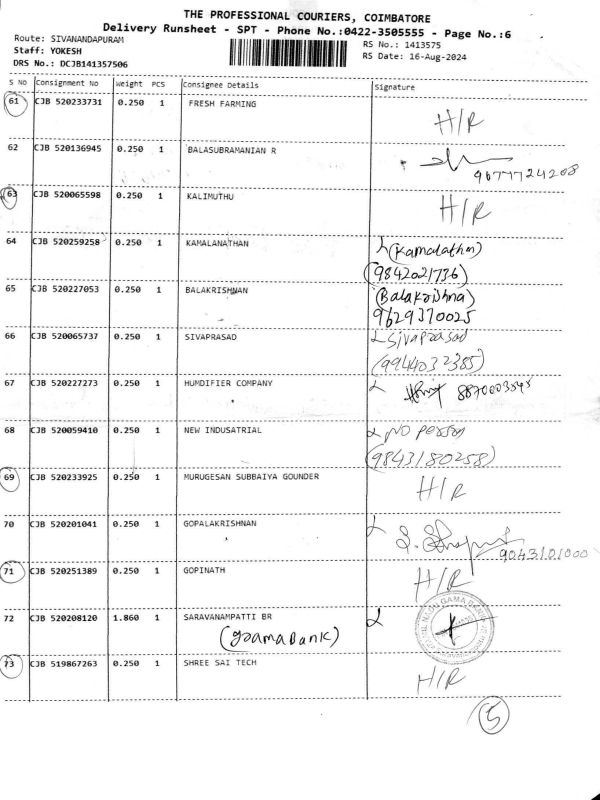 THE PROFESSIONAL COURIERS, COIMBATORE
Delivery Runsheet - SPT - Phone No.:0422-3505555 - Page No.:6
Route: SIVANANDAPURAM
Staff: YOKESH
DRS No.: DCJB141357506
RS No.: 1413575
RS Date: 16-Aug-2024
S No Consignment No Weight PCS Consignee Details Signature
61 CJB 520233731 0.250 1 FRESH FARMING H/R
62 CJB 520136945 0.250 1 BALASUBRAMANIAN R
9677724208
63 CJB 520065598 0.250 1 KALIMUTHU H/R
64 CJB 520259258 0.250 1 KAMALANATHAN (Kamalathan)
(9842021736)
65 CJB 520227053 0.250 1 BALAKRISHNAN (Balakrishna)
9629370025
66 CJB 520065737 0.250 1 SIVAPRASAD Sivaprasad
(9944032385)
67 CJB 520227273 0.250 1 HUMDIFIER COMPANY 8870003545
68 CJB 520059410 0.250 1 NEW INDUSATRIAL NO person
(9843180258)
69 CJB 520233925 0.250 1 MURUGESAN SUBBAIYA GOUNDER H/R
70 CJB 520201041 0.250 1 GOPALAKRISHNAN
9043101000
71 CJB 520251389 0.250 1 GOPINATH H/R
72 CJB 520208120 1.860 1 SARAVANAMPATTI BR
(gramabank)
73 CJB 519867263 0.250 1 SHREE SAI TECH H/R
5